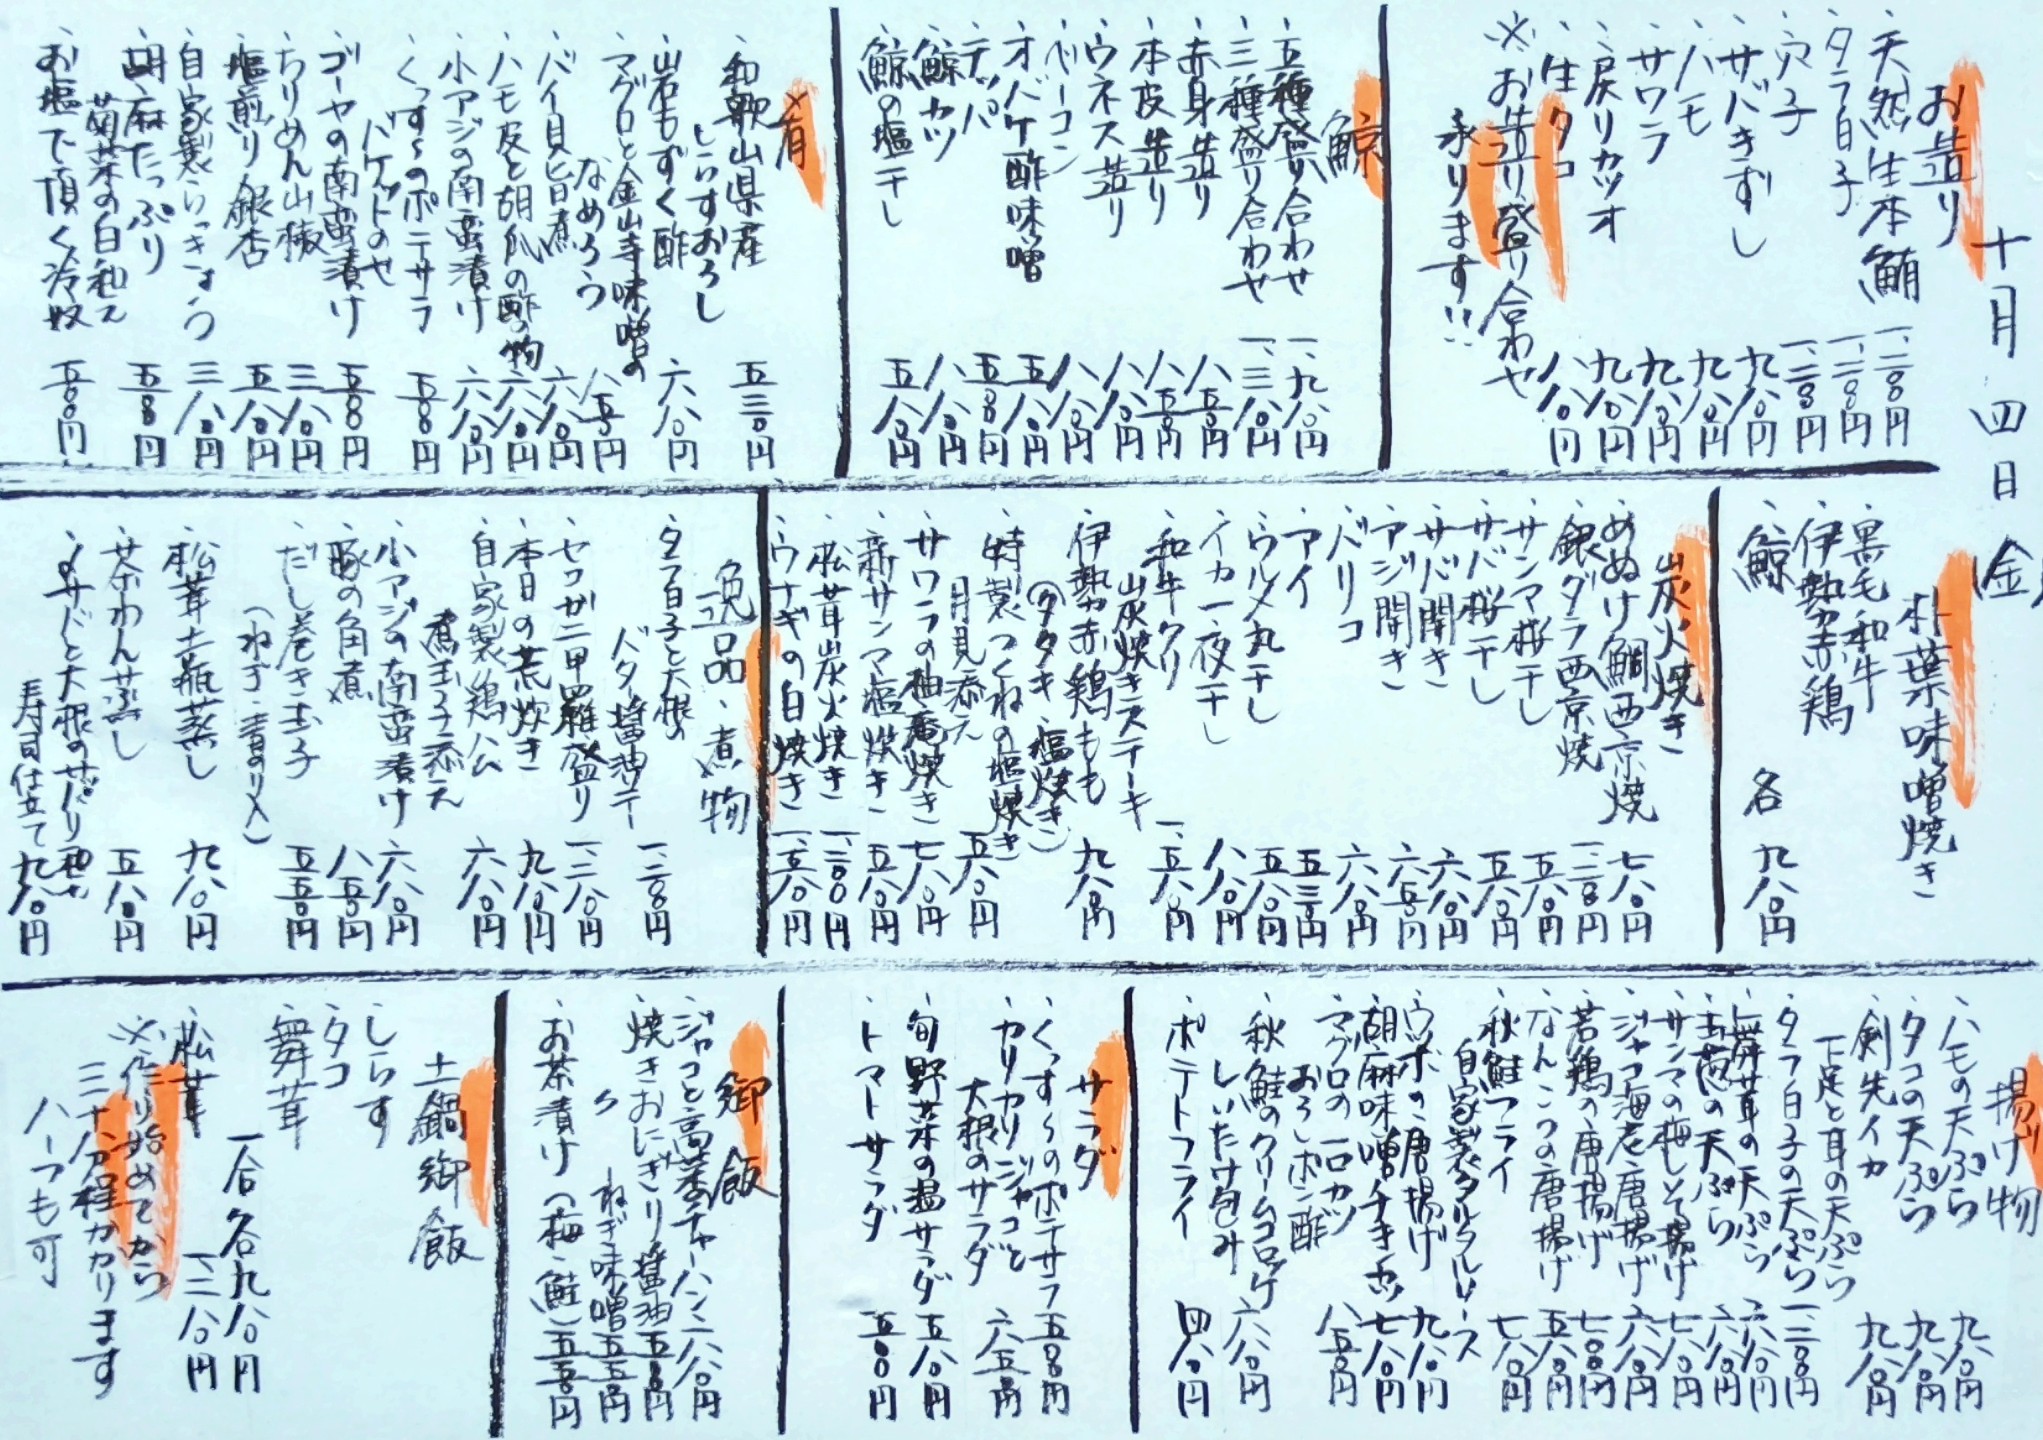 十月四日(金)
お造り
、天然生本鮪 一、二〇〇円
、タラ白子 一、二〇〇円
、穴子 一、二〇〇円
、サバきずし 九八〇円
、ハモ 九八〇円
、サワラ 九八〇円
、戻りカツオ 九八〇円
、生タコ 八八〇円
※お造り盛り合わせ
承ります!!
鯨
、五種盛り合わせ 一、九八〇円
、三種盛り合わせ 一、三八〇円
、赤身造り 八五〇円
、本皮造り 八五〇円
、ウネス造り 八八〇円
、ベーコン 八八〇円
、オバケ酢味噌 五八〇円
、テッパ 五五〇円
、鯨カツ 八八〇円
、鯨の塩干し 五八〇円
肴
、和歌山県産
しらすおろし 五三〇円
、岩もずく酢 六八〇円
、マグロと金山寺味噌の
なめろう 八五〇円
、バイ貝旨煮 六八〇円
、ハモ皮と胡瓜の酢の物 六八〇円
、小アジの南蛮漬け 六八〇円
、くっすぅのポテサラ
バケットのせ 五五〇円
、ゴーヤの南蛮漬け 五五〇円
、ちりめん山椒 三八〇円
、塩煎り銀杏 五八〇円
、自家製らっきょう 三八〇円
、胡麻たっぷり
菊菜の白和え 五五〇円
、お塩で頂く冷奴 五〇〇円
朴葉味噌焼き
、黒毛和牛
、伊勢赤鶏
、鯨
各 九八〇円
炭火焼き
、あぬけ鯛西京焼 七八〇円
、銀ダラ西京焼 一、二〇〇円
、サンマ桜干し 五八〇円
、サバ桜干し 五八〇円
、サバ開き 六八〇円
、アジ開き 六五〇円
、バリコ 六八〇円
、アイ 五三〇円
、ウルメ丸干し 五八〇円
、イカ一夜干し 八八〇円
、和牛クリ
炭焼きステーキ 一、五八〇円
、伊勢赤鶏もも
(タタキ・塩焼き) 九八〇円
、特製つくねの塩焼き
月見添え 五八〇円
、サワラの柚庵焼き 七八〇円
、新サンマ塩焼き 五八〇円
、松茸炭火焼き 一、三〇〇円
、ウナギの白焼き 一、五八〇円
逸品・煮物
、タラ白子と大根の
バター醤油テー 一、二〇〇円
、セコガニ甲羅盛り 一、二八〇円
、本日の荒炊き 九八〇円
、自家製鶏ハム 六八〇円
、小アジの南蛮漬け 六八〇円
、豚の角煮
煮玉子添え 八五〇円
、だし巻き玉子
(ねぎ・青のり入) 五五〇円
、松茸土瓶蒸し 九八〇円
、茶わんむし 五八〇円
寿司仕立て 九八〇円
揚げ物
、ハモの天ぷら 九八〇円
、タコの天ぷら 九八〇円
、剣先イカ
下足と耳の天ぷら 九八〇円
、タラ白子の天ぷら 一、二〇〇円
、舞茸の天ぷら 六八〇円
、玉葱の天ぷら 六八〇円
、サンマの梅しそ揚げ 七八〇円
、ジャコ海老唐揚げ 六八〇円
、若鶏の唐揚げ 七〇〇円
、なんこつの唐揚げ 五八〇円
、秋鮭フライ
自家製タルタルソース 七八〇円
、ウツボの唐揚げ 九八〇円
、胡麻味噌チキカツ 七八〇円
、マグロの一口カツ
おろしポン酢 八五〇円
、秋鮭のクリームコロッケ
しいたけ包み 六八〇円
、ポテトフライ 四八〇円
サラダ
、くっすぅのポテサラ 五五〇円
、カリカリジャコと
大根のサラダ 六五〇円
、旬野菜の温サラダ 五八〇円
、トマトサラダ 五〇〇円
御飯
、ジャコと高菜チャーハン 六八〇円
、焼きおにぎり醤油 五五〇円
〃 ねぎ味噌 五五〇円
、お茶漬け(梅・鮭) 五五〇円
土鍋御飯
、しらす
、タコ
、舞茸
一合各九八〇円
、松茸 一、二八〇円
※作り始めてから
三十分程かかります
ハーフも可